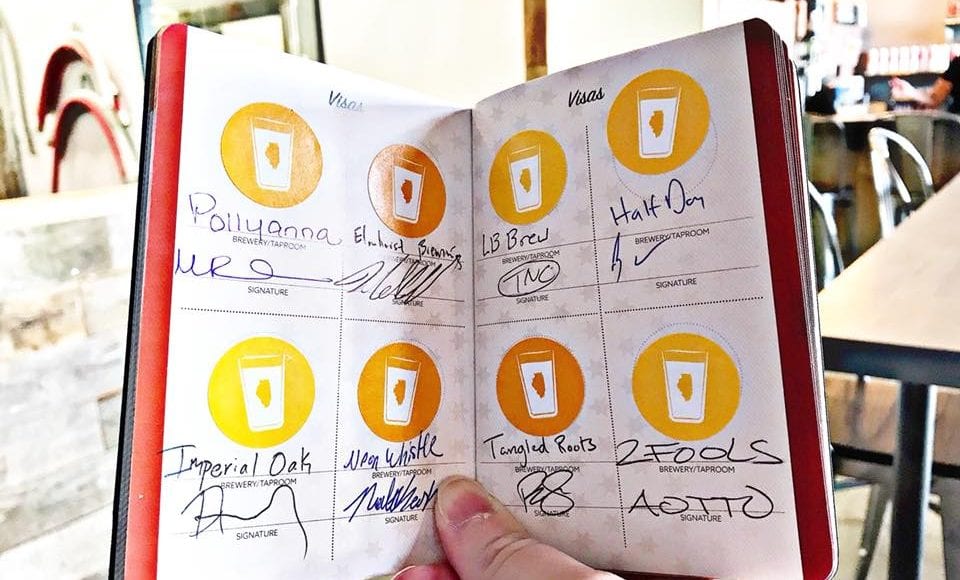 Visas
Pollyanna
BREWERY/TAPROOM
SIGNATURE
Elmhurst Brewing
BREWERY/TAPROOM
SIGNATURE
Imperial Oak
BREWERY/TAPROOM
SIGNATURE
Noon Whistle
BREWERY/TAPROOM
SIGNATURE
Visas
LB Brew
BREWERY/TAPROOM
TNC
SIGNATURE
Half Day
BREWERY/TAPROOM
SIGNATURE
Tangled Roots
BREWERY/TAPROOM
SIGNATURE
2FOOLS
BREWERY/TAPROOM
AOTTO
SIGNATURE